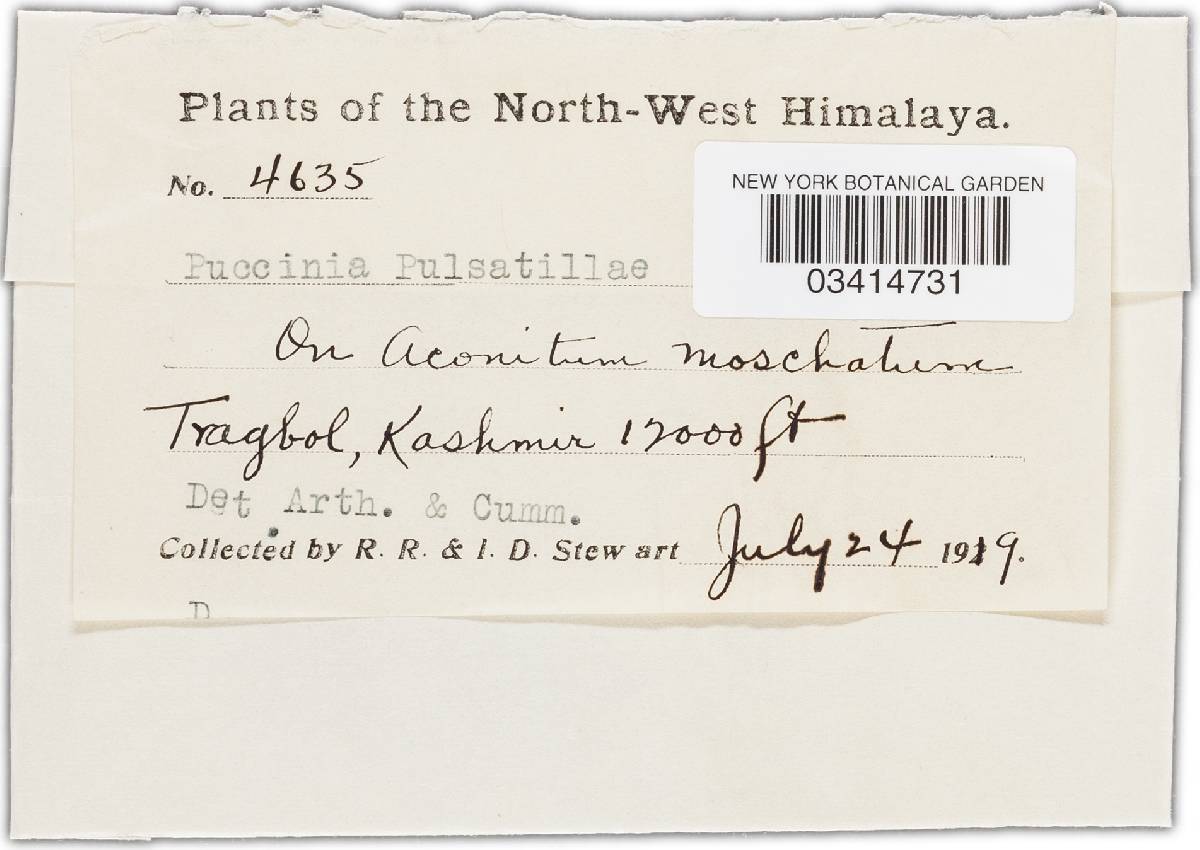 Plants of the North-West Himalaya.
No. 4635
NEW YORK BOTANICAL GARDEN
03414731
Puccinia Pulsatillae
On Aconitum moschatum
Tragbol, Kashmir 12000 ft
Det. Arth. & Cumm.
Collected by R. R. & I. D. Stewart July 24 1919.
D